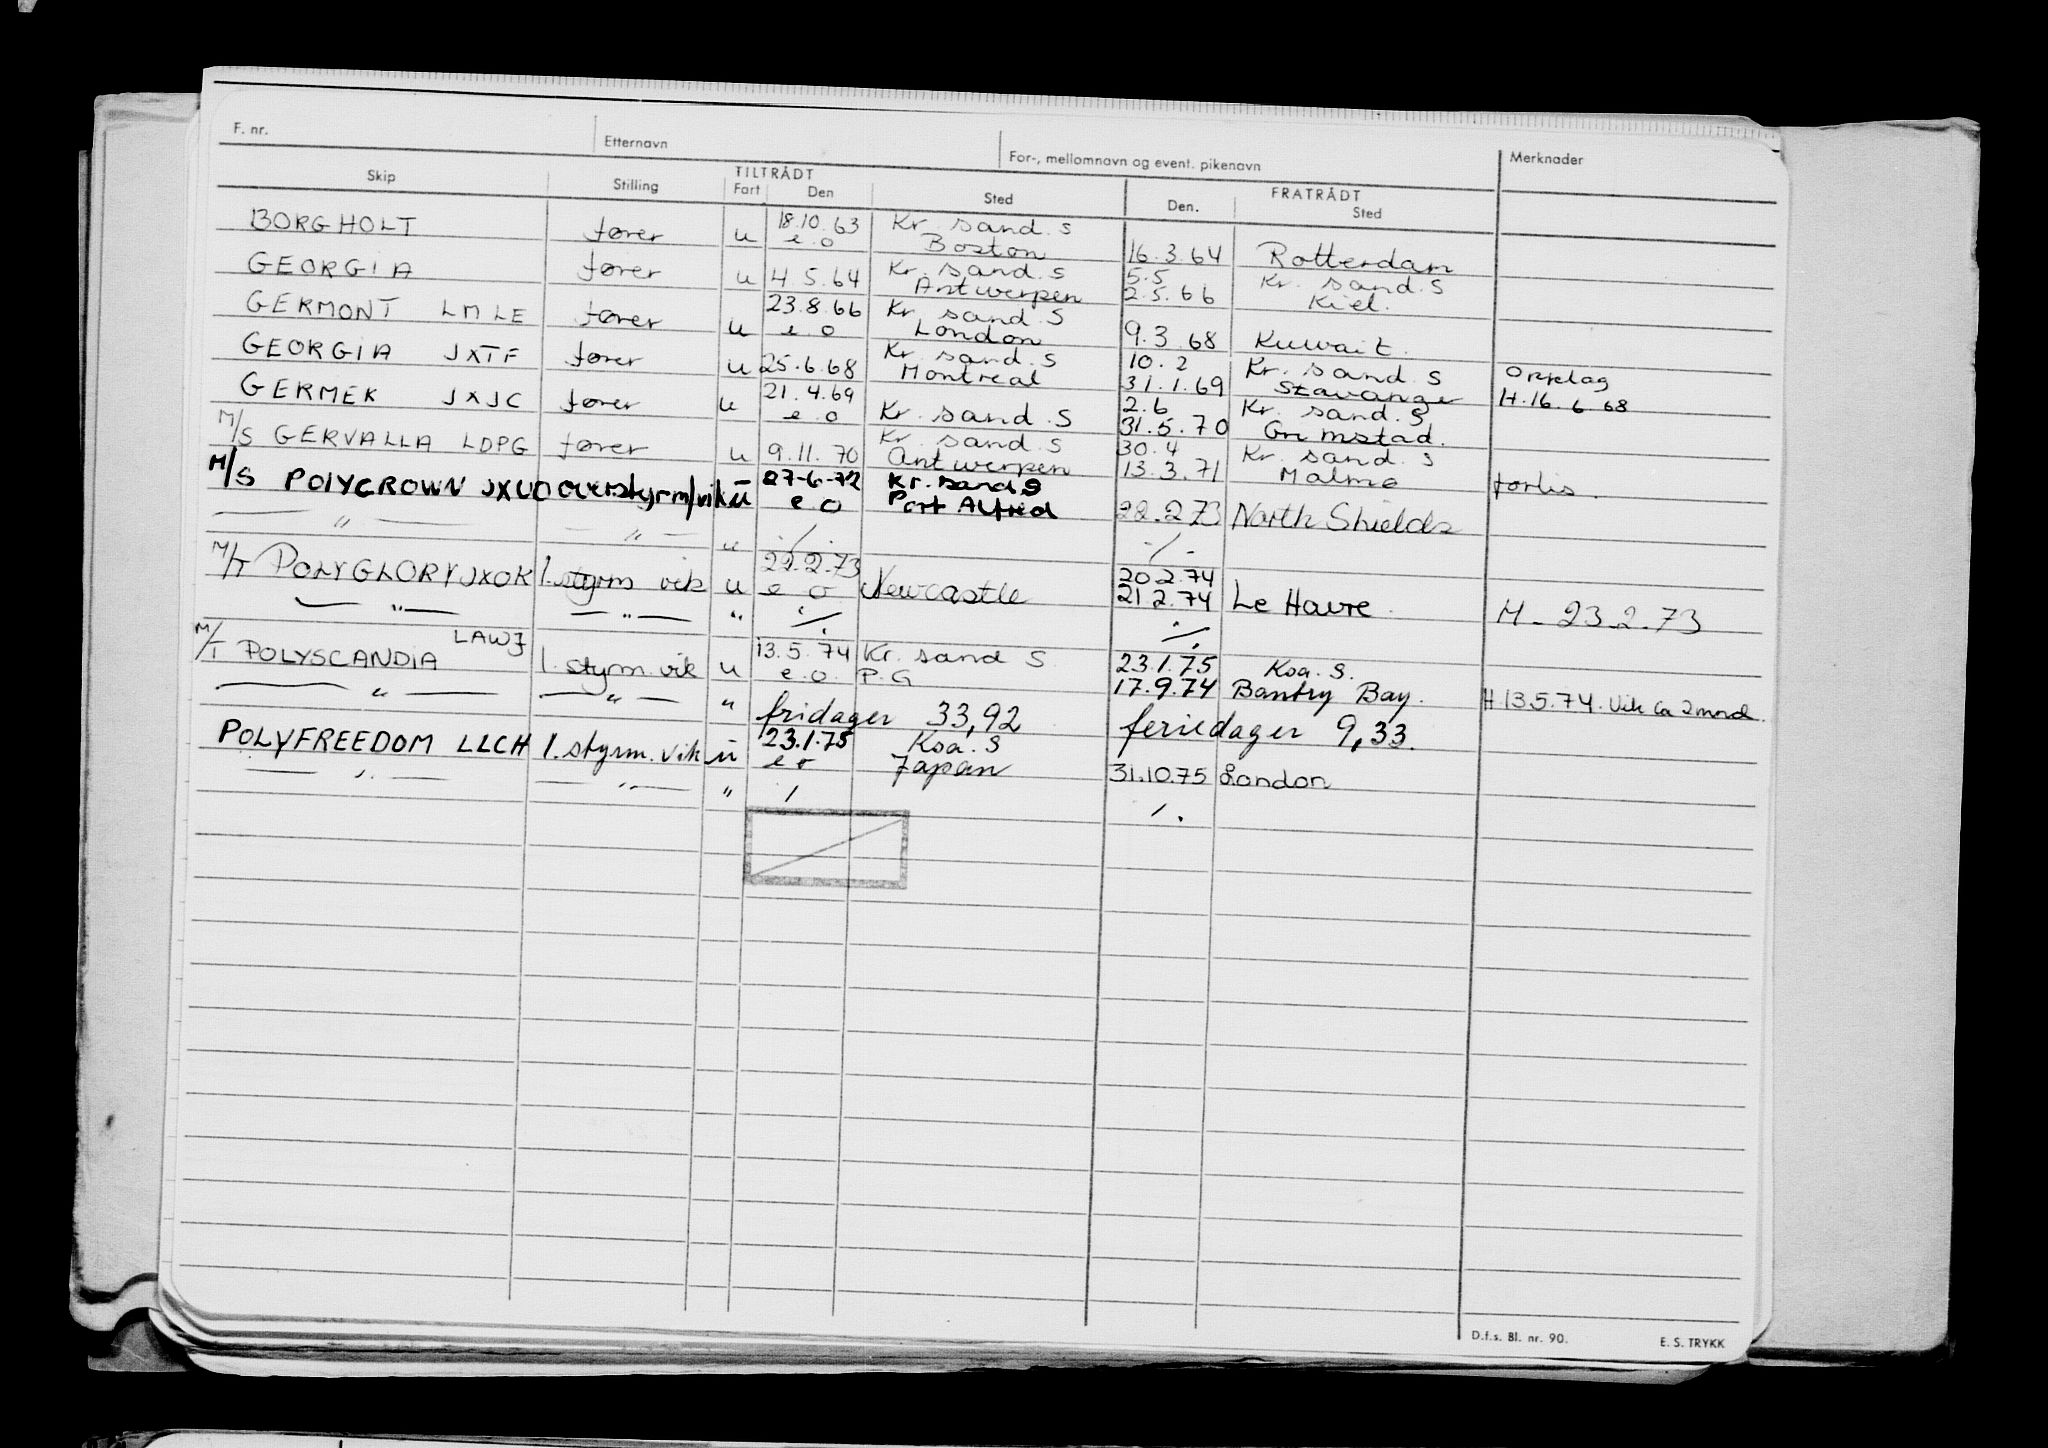 F. nr. Etternavn For-, mellomnavn og event. pikenavn Merknader
Skip Stilling TILTRÅDT Fart Den Sted FRATRÅDT Den. Sted
BORGHOLT fører u 18.10.63 Kr. sand. S
e.o Boston 16.3.64 Rotterdam
GEORGIA fører u 4 5.64 Kr. sand. S 5.5 Kr. sand. S
Antwerpen 2.5.66 Kiel.
GERMONT LMLE fører u 23.8.66 Kr. sand. S
e.o London 9.3.68 Kuwait.
GEORGIA JXTF fører u 25.6.68 Kr. sand. S 10.2 Kr. sand. S Opplag
Montreal 31.1.69 Stavanger H.16.6 68
GERMEK JXJC fører u 21.4.69 2.6 Kr. sand. S
e.o Kr. sand. S 31.5.70 Grimstad.
M/S GERVALLA LDPG fører u 9.11.70 Kr. sand. S 30.4 Kr. sand. S
Antwerpen 13.3.71 Malmø forlis.
M/S POLYCROWN JXUO overstyrm/vik ū 27-6-72 Kr. sand S
e.o Port Alfred 22.2.73 North Shields
— " — — " — " ./. ./.
M/T POLYGLORY JXOK 1.styrm vik u 22.2.73 20.2.74
e o Newcastle 21 2.74 Le Havre. M - 23.2.73
— " — — " — " ./. ./.
M/T POLYSCANDIA LAWJ 1.styrm.vik u 13.5.74 Kr. sand S 23.1.75 Ksa. S.
e.o. P.G 17.9.74 Bantry Bay. H 13.5.74. Vik ca 2 mnd.
— " — — " — " fridager 33,92 feriedager 9,33.
POLYFREEDOM LLCH 1.styrm.vik ū 23.1.75 Ksa. S
e o Japan 31.10.75 London
— " — — " — " / /.
D.f.s. Bl. nr. 90. E. S. TRYKK